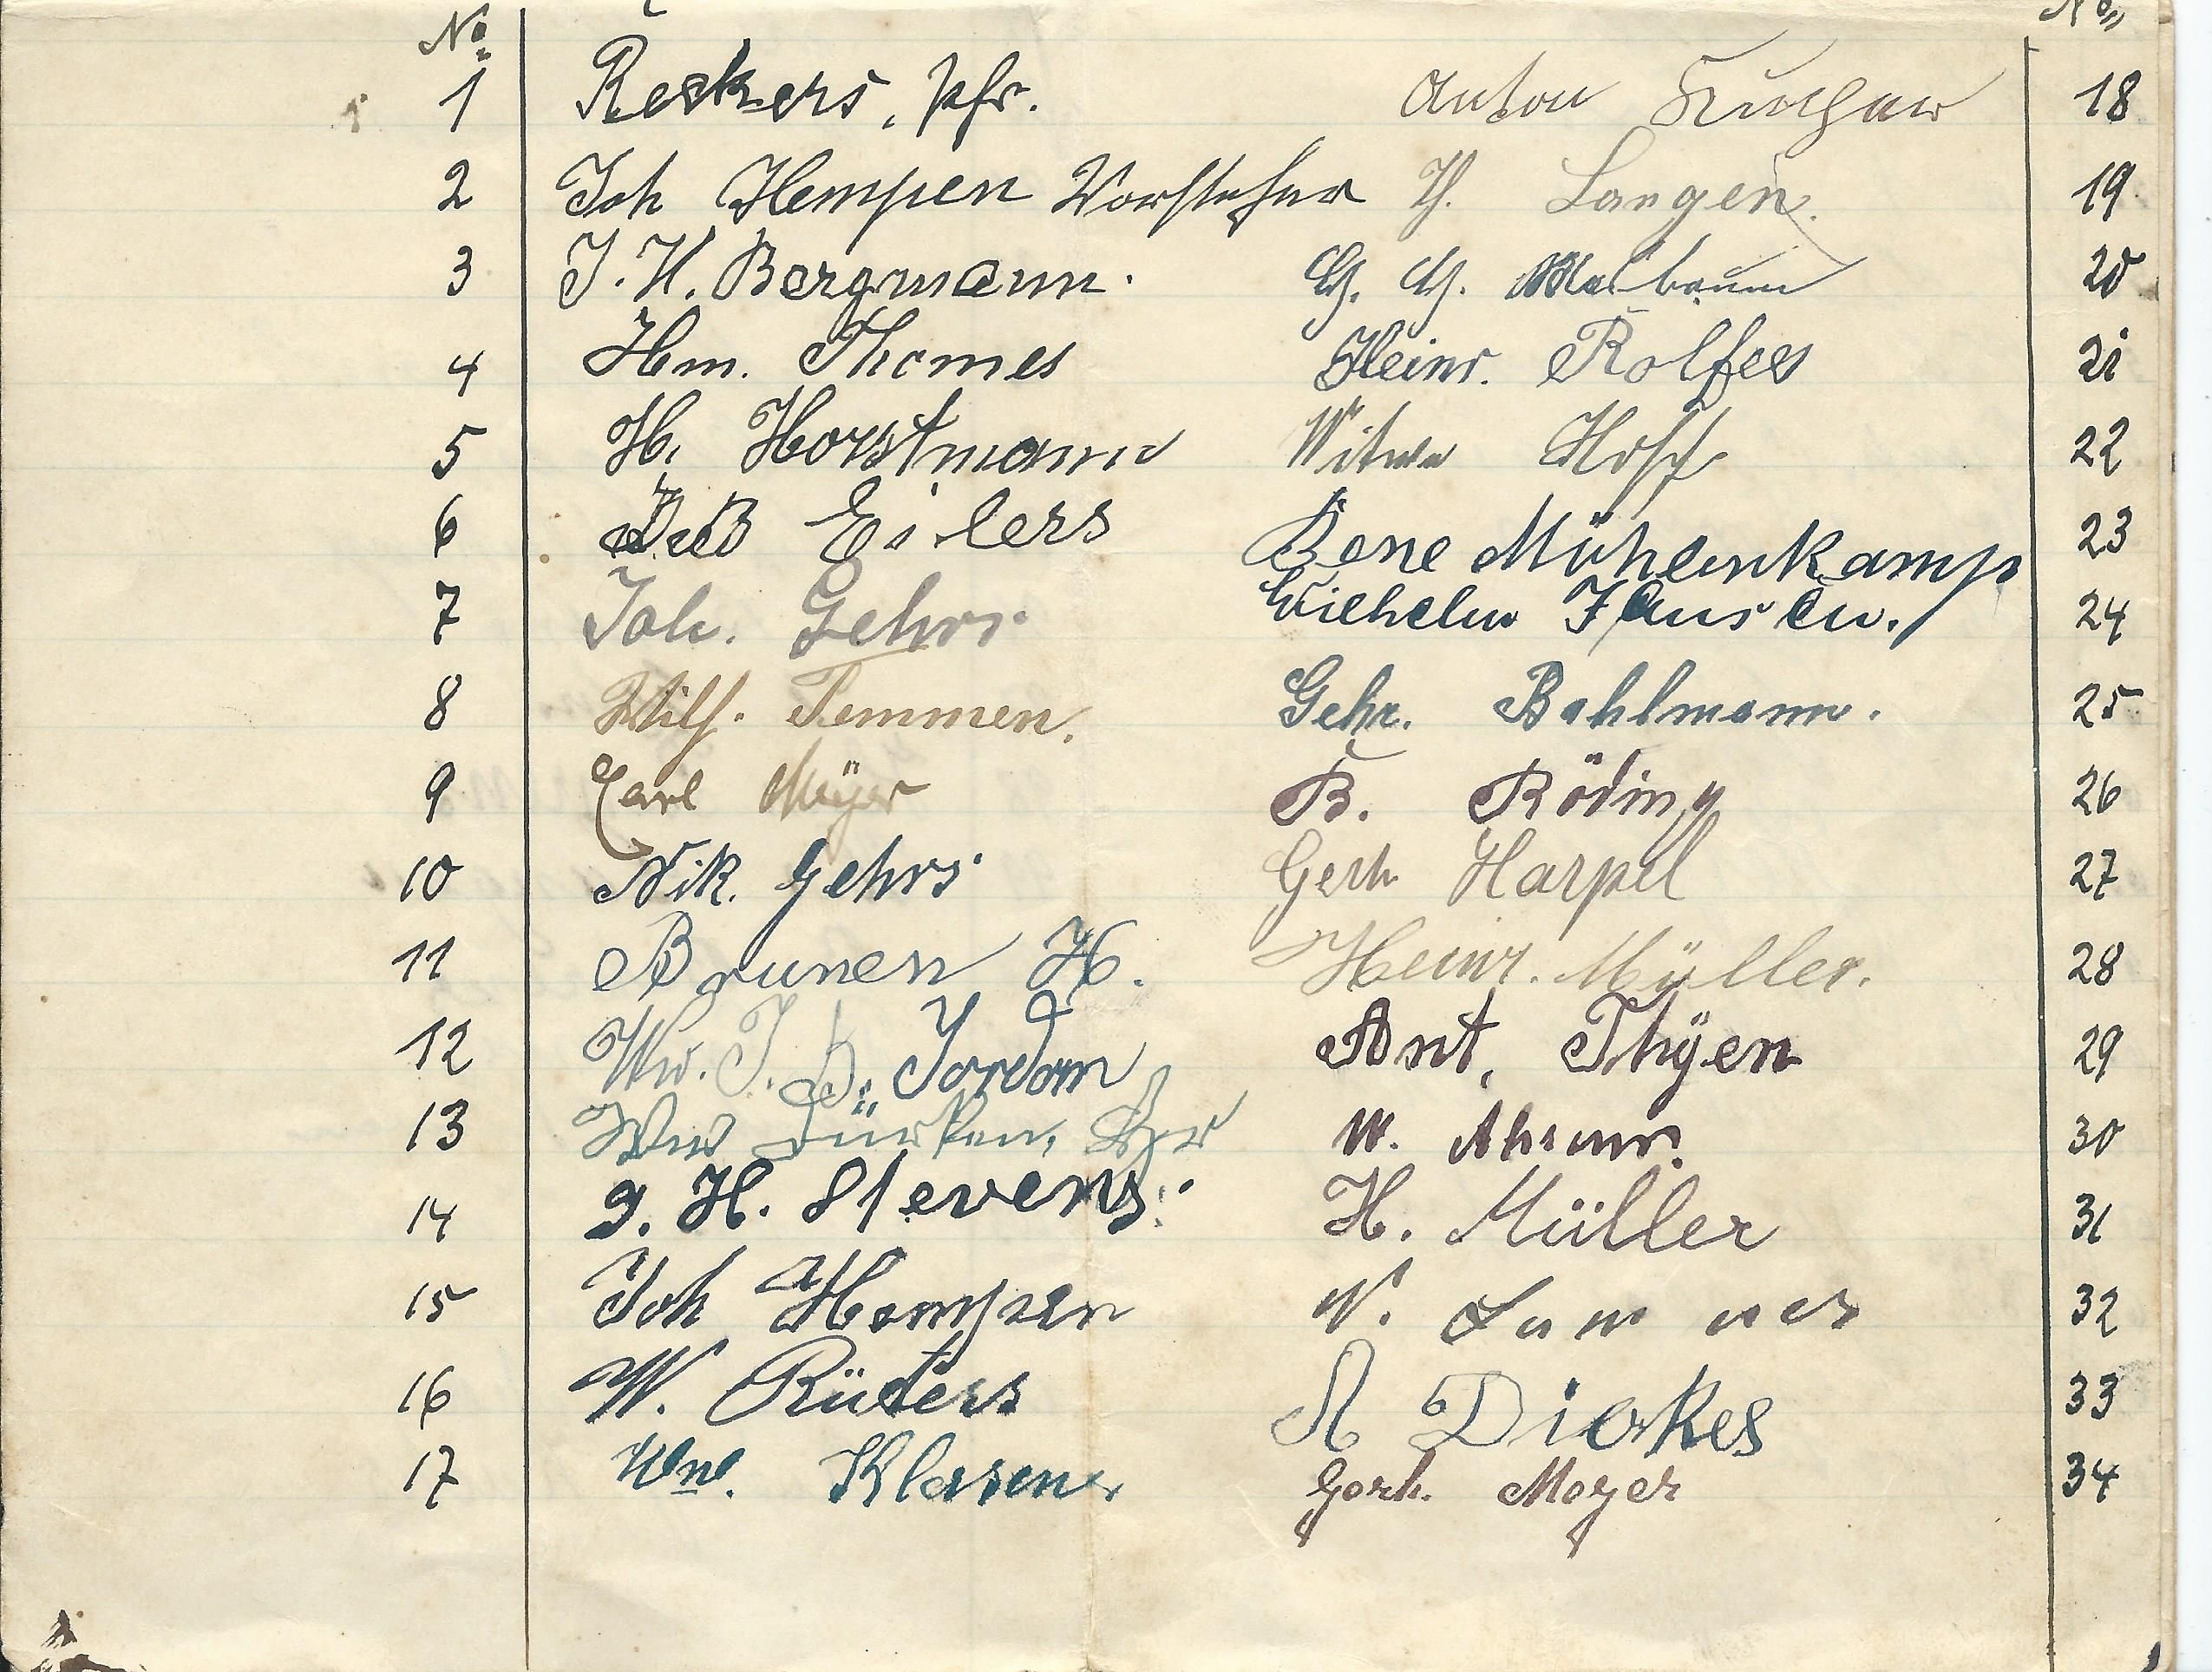 No.
1 Reckers, Pfr.
2 Joh Hempen Vorsteher
3 J. H. Bergmann.
4 Hm. Thomes
5 H. Horstmann
6 Eilers
7 Joh. Gehrs
8 Wilh. Temmen.
9 Carl Meÿer
10 Nik. Gehrs
11 Brunen H.
12 Ww. J. B. Jordan
13 Ww
14 g. H. Stevens.
15 Joh Hempen
16 W. Rüters
17 Ww. Klasen
No.
Anton 18
H. Langen. 19
Malbaum 20
Heinr. Rolfes 21
Witwe Hoff 22
Bene Mühlenkamp 23
Wilhelm Jansen. 24
Gehr. Bahlmann. 25
B. Röding 26
Gerh Harpel 27
Heinr. Müller. 28
Ant. Thÿen 29
W. Ahrens. 30
H. Müller 31
32
A Dierkes 33
Gerh. Meyer 34